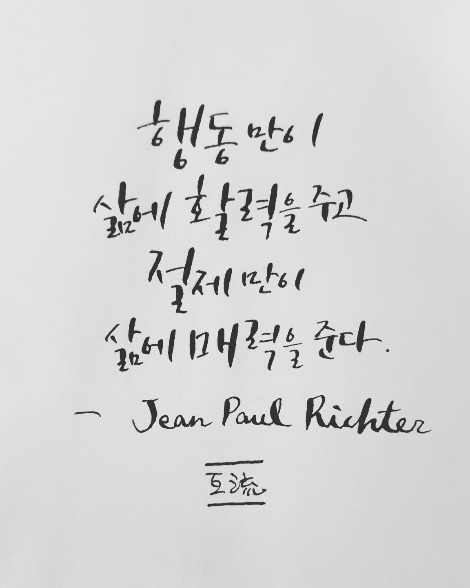 행동만이
삶에 활력을 주고
절제만이
삶에 매력을 준다.
— Jean Paul Richter